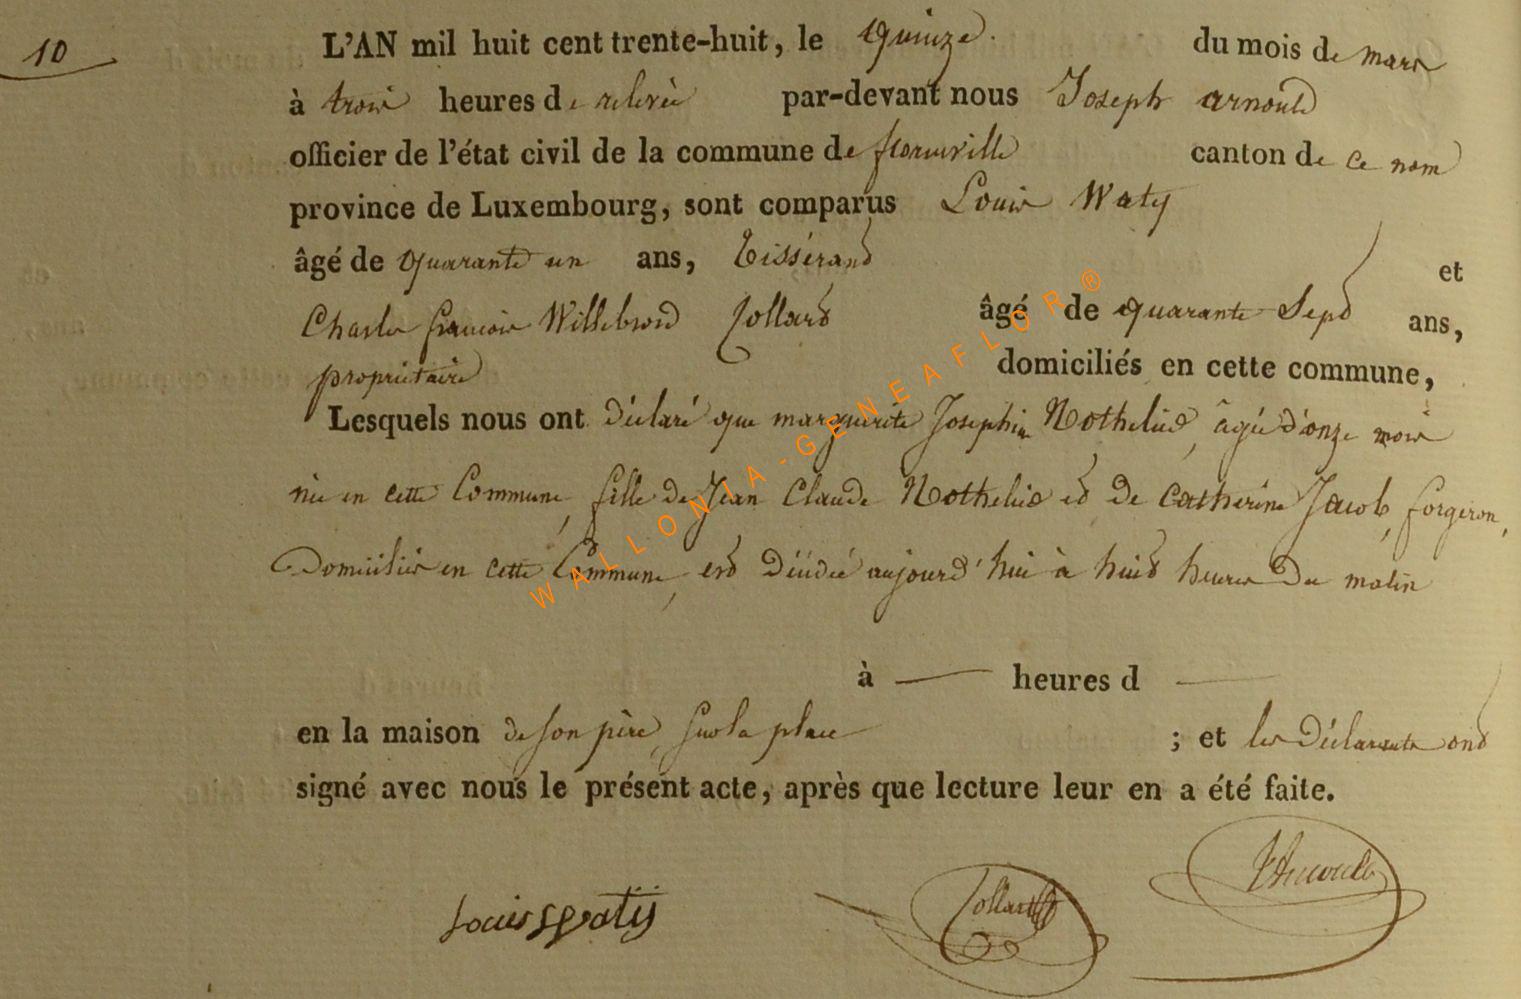 10
L'AN mil huit cent trente-huit, le quinze. du mois de mars
à trois heures de relevée par-devant nous Joseph arnould
officier de l'état civil de la commune de florenville canton de ce nom
province de Luxembourg, sont comparus Louis Waty
âgé de quarante un ans, Tissérand et
Charles françois Willebrord Collard âgé de quarante Sept ans,
propriétaire domiciliés en cette commune,
Lesquels nous ont déclaré que marguerite Josephine Nothelié, âgée d'onze mois
née en cette Commune, fille de Jean Claude Nothelié et de Catherine Jacob, forgeron,
Domiciliés en cette Commune, est Décédée aujourd'hui à huit heures Du matin
à — heures d —
en la maison de son père, sur la place ; et les Déclarants ont
signé avec nous le présent acte, après que lecture leur en a été faite.
Louis Watÿ Collard JArnould
WALLONIA-GENEAFLOR®